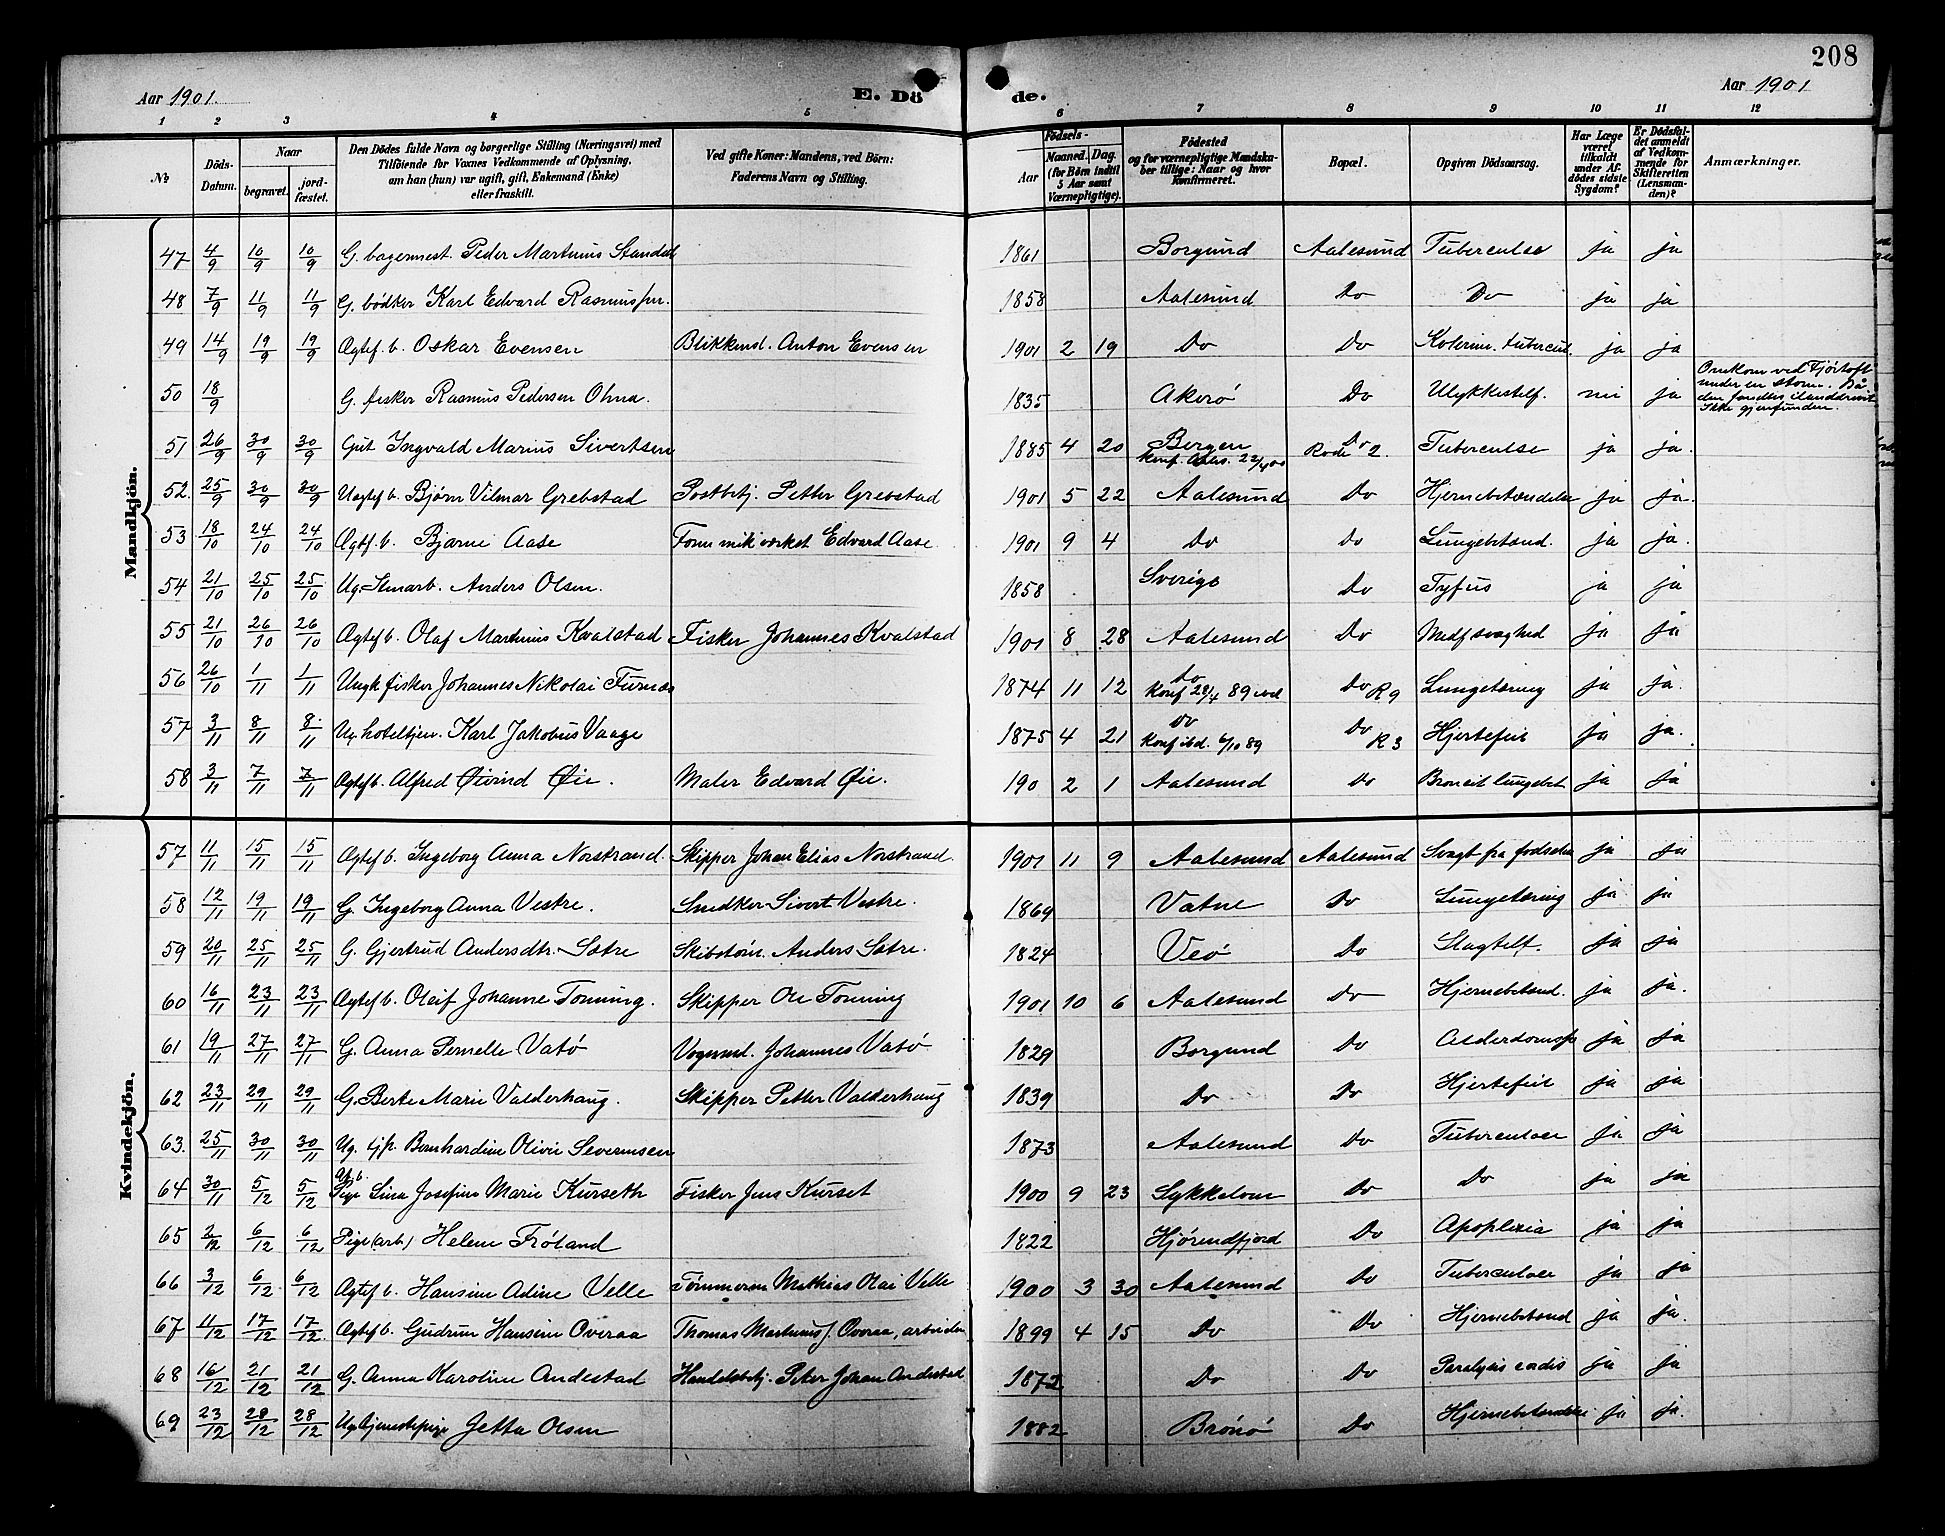 208
Aar 1901.
E. Dö de.
Aar 1901
1 2 3 4 5 6 7 8 9 10 11 12
№
Döds-Datum.
Naar
begravet.
jordfæstet.
Den Dödes fulde Navn og borgerlige Stilling (Næringsvei) med
Tilföiende for Voxnes Vedkommende af Oplysning,
om han (hun) var ugift, gift, Enkemand (Enke)
eller fraskilt.
Ved gifte Koner: Mandens, ved Börn:
Faderens Navn og Stilling.
Födsels-
Aar
Maaned. Dag.
(for Börn indtil
5 Aar samt
Værnepligtige).
Födested
og for værnepligtige Mandskaber tillige: Naar og hvor
Konfirmeret.
Bopæl.
Opgiven Dödsaarsag.
Har Læge
været
tilkaldt
under Afdödes sidste
Sygdom?
Er Dödsfaldet anmeldt
af Vedkommende for
Skifteretten
(Lensmanden)?
Anmærkninger.
Mandkjön.
47 4/9 10/9 10/9 G. bagermest. Peder Martinus Standal 1861 Borgund Aalesund Tuberculse ja ja
48 7/9 11/9 11/9 G. bödker Karl Edvard Rasmussen. 1858 Aalesund Do Do ja ja
49 14/9 19/9 19/9 Ægtef. b. Oskar Evensen Blikkensl. Anton Evensen 1901 2 19 Do Do tubercul. ja ja
50 18/9 G. fisker Rasmus Pedersen Ohna. 1835 Akerö Do Ulykkestilf. nei ja Omkom ved Fjörtoft
under en storm. Baaden fandtes ilanddrevet
Ikke gjenfunden.
51 26/9 30/9 30/9 Gut Ingvald Marius Sivertsen 1885 4 20 Bergen Konf. Aales. 22/4 00 Do Rode 2. Tuberculse ja ja
52. 25/9 30/9 30/9 Uægtef b. Bjørn Vilmar Grebstad Postbetj. Petter Grebstad 1901 5 22 Aalesund Do Hjernebetændelse ja ja.
53 18/10 24/10 24/10 Ægtef. b. Bjarne Aase Edvard Aase. 1901 9 4 Do Do Lungebetænd. ja ja.
54 21/10 25/10 25/10 Ug. Stenarb. Anders Olsen. 1858 Sverige Do Tyfus ja ja
55 21/10 26/10 26/10 Ægtef b. Olaf Martinius Kvalstad Fisker Johannes Kvalstad 1901 8 28 Aalesund Do Medf svaghed ja ja
56 26/10 1/11 1/11 Ungk fisker Johannes Nikolai Furnæs 1874 11 12 Do Konf 28/4 89 ibd Do R 9 Lungetæring ja ja.
57 3/11 8/11 8/11 Ug hoteltjen. Karl Jakobus Vaage 1875 4 21 Do Konf ibd. 6/10 89 Do R 3 Hjertefeil ja ja.
58 3/11 7/11 7/11 Ægtef b. Alfred Øivind Øie. Maler Edvard Øie. 190 2 1 Aalesund Do Broncit lungebet ja ja
Kvindekjön.
57 11/11 15/11 15/11 Ægtef b. Ingeborg Anna Norstrand. Skipper Johan Elias Norstrand. 1901 11 9 Aalesund Aalesund Svagt fra fødselen ja ja
58 12/11 19/11 19/11 G. Ingeborg Anna Vestre. Snedker Sivert Vestre. 1869 Vatne Do Lungetæring ja ja
59 20/11 25/11 25/11 G. Gjertrud Andersdtr. Sætre Skibstøm. Anders Sætre. 1824 Veø Do Slagtilf. ja ja
60 16/11 23/11 23/11 Ægtef b. Olaif Johanne Tonning. Skipper Ole Tonning 1901 10 6 Aalesund Do Hjernebetænd. ja ja.
61 19/11 27/11 27/11 G. Anna Pernelle Vatø Johannes Vatø 1829 Borgund Do Alderdomss ja ja
62 23/11 29/11 29/11 G. Berte Marie Valderhaug. Skipper Petter Valderhaug 1839 Do Do Hjertefeil ja ja
63. 25/11 30/11 30/11 Ug. tjp. Bernhardine Olivie Severinsen 1873 Aalesund Do Tuberculose ja ja
64 30/11 5/12 5/12 Æg. b. Pige Lina Josefine Marie Kurseth Fisker Jens Kurset 1900 9 23 Sykkelven Do Do ja ja
65 2/12 6/12 6/12 Pige (arb) Helene Frøland 1822 Hjørendfjord Do Apoplexia ja ja
66 3/12 6/12 6/12 Ægtef b. Hansine Adine Velle Tømmerm Mathias Olai Velle 1900 3 30 Aalesund Do Tuberculose ja ja
67 4/12 17/12 17/12. Ægtef b. Gudrun Hansine Overaa Thomas Martinus J. Overaa, arbeider 1899 4 15 Do Do Hjernebetænd ja ja.
68 16/12 21/12 21/12 G. Anna Karoline Andestad Handelsbetj. Peter Johan Andestad 1872 Do Do Paralysis cordis ja ja
69 23/12 28/12 28/12 Ug tjenestepige Jetta Olsen 1882 Brønø Do Hjernebetændelse ja ja.